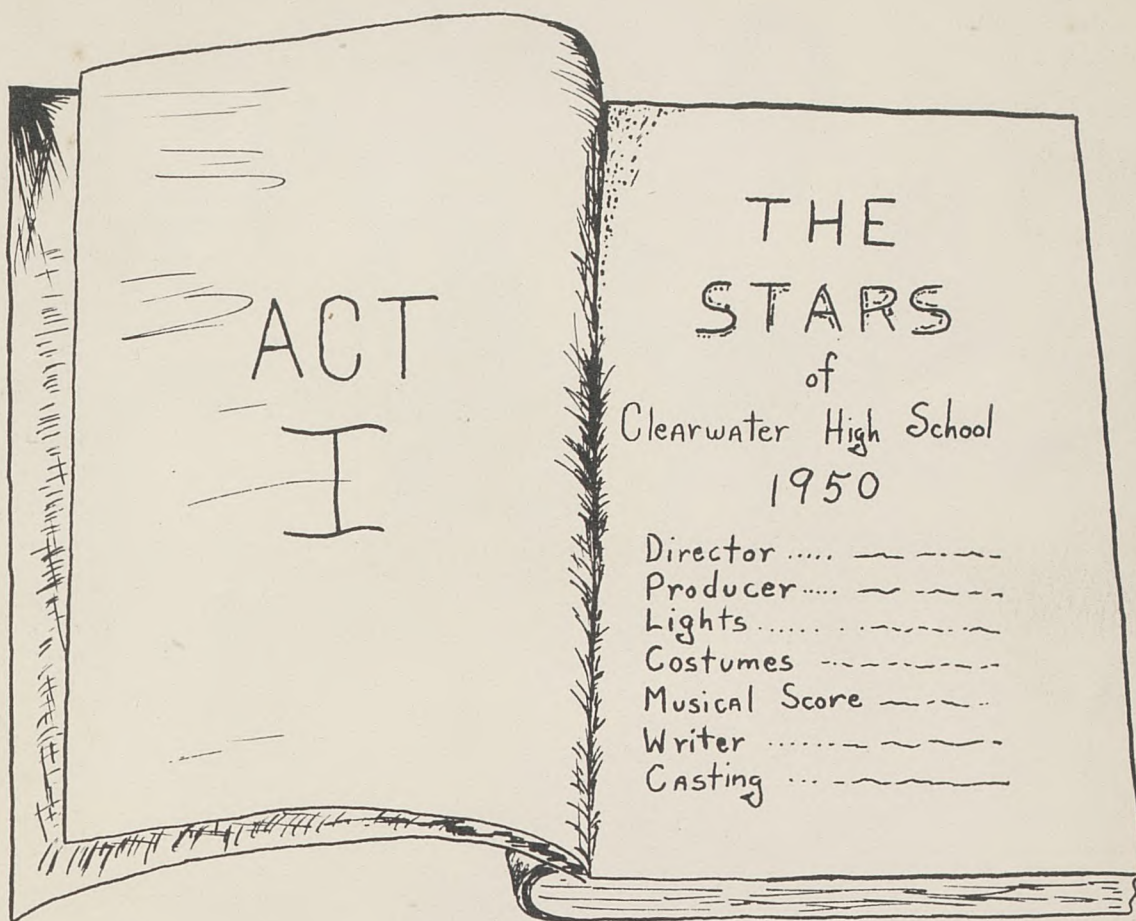 ACT
I
THE
STARS
of
Clearwater High School
1950
Director
Producer
Lights
Costumes
Musical Score
Writer
Casting